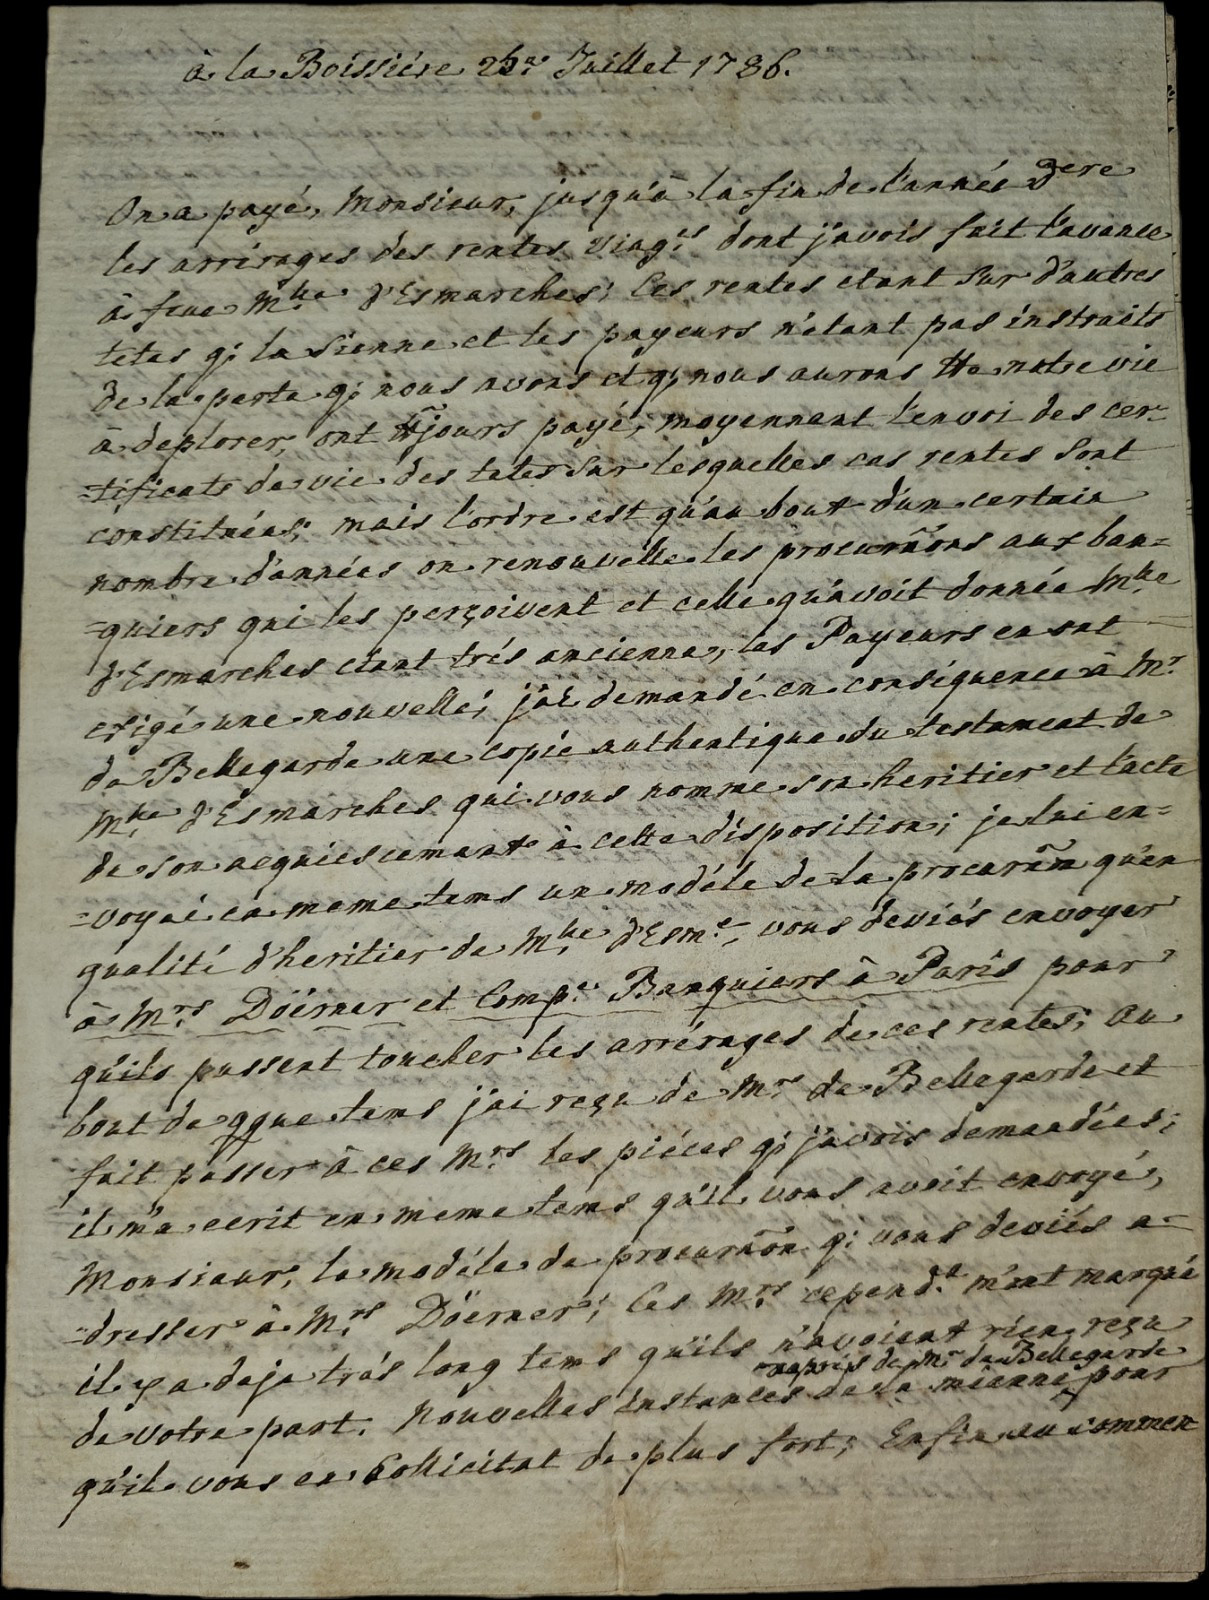 à la Boissiére 2 Juillet 1786.
On a payé, Monsieur, jusqu'à la fin de l'année dere
les arrérages des rentes viagres dont j'avois fait l'avance
à feue Mlle d'Esmarches; ces rentes etant sur d'autres
tetes q; la sienne et les payeurs n'etant pas instruits
de la perte q; nous avons et q; nous aurons tte notre vie
à deplorer, ont ttjours payé, moyennent l'envoi des cer-
=tificats de vie des tetes sur lesquelles ces rentes sont
constituées; mais l'ordre est qu'au bout d'un certain
nombre d'années on renouvelle les procurãons aux ban=
=quiers qui les perçoivent et celle qu'avoit donnée Mlle
d'Esmarches etant trés ancienne, les Payeurs en ont
exigé une nouvelle; j'ai demandé en conséquence à Mr.
de Bellegarde une copie authentique du testament de
Mlle d'Esmarches qui vous nomme son heritier et l'acte
de son acquiescement à cette disposition; je lui en=
=voyai en meme tems un modéle de la procurãon qu'en
qualité d'heritier de Mlle d'Esm.e, vous deviés envoyer
à Mrs. Döerner et Comp.e Banquiers à Paris pour
qu'ils pussent toucher les arrérages de ces rentes; au
bout de qque tems j'ai reçu de Mr. de Bellegarde et
fait passer à ces Mrs. les piéces q; j'avois demandées;
il m'a ecrit en meme tems qu'il vous avoit envoyé,
Monsieur, le modéle de procurãon q; vous deviés a-
=dresser à Mrs. Döerner; ces Mrs. cepend.t m'ont marqué
il y a deja trés long tems qu'ils n'avoient rien reçu
auprès de Mr. de Bellegarde
de votre part. Nouvelles instances de la mienne pour
qu'il vous en sollicitat de plus fort; Enfin au commen